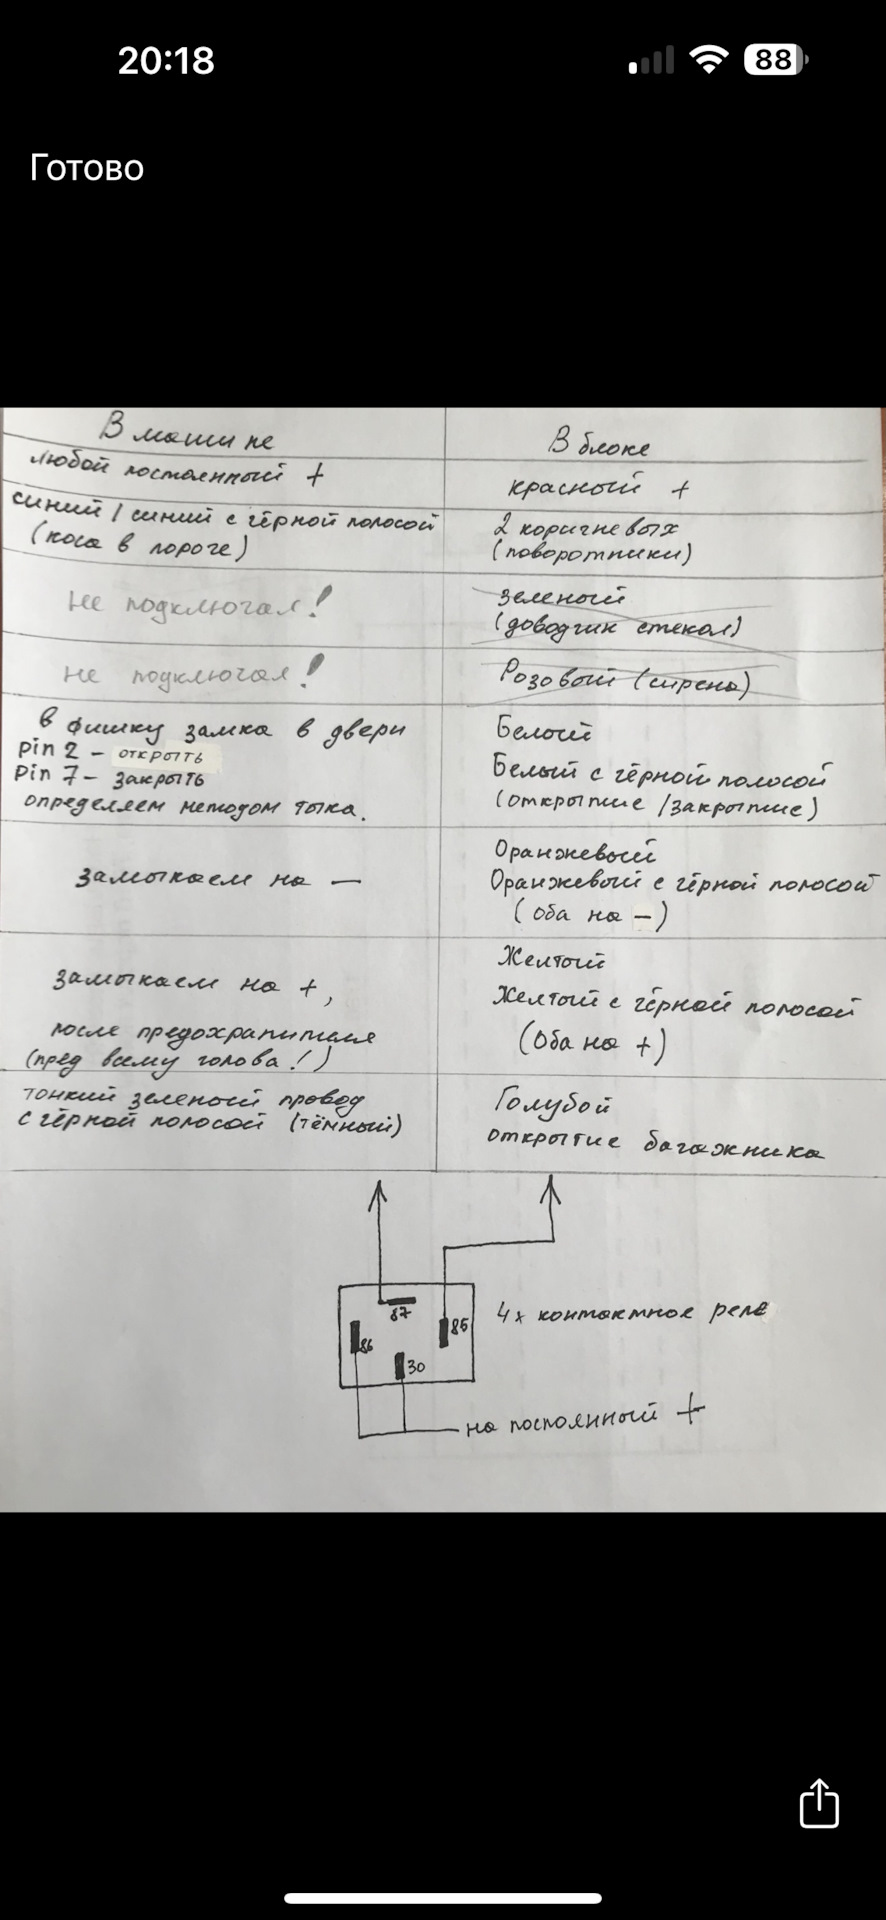 20:18
88
Готово
В машине
В блоке
любой постоянный +
красный +
синий / синий с чёрной полосой
(коса в пороге)
2 коричневых
(поворотники)
Не подключал!
зеленый
(доводчик стекол)
не подключал!
Розовый (сирена)
в фишку замка в двери
pin 2 – открыть
pin 7 – закрыть
определяем методом тыка.
Белый
Белый с чёрной полосой
(открытие / закрытие)
замыкаем на —
Оранжевый
Оранжевый с чёрной полосой
(оба на –)
замыкаем на +,
после предохранителя
(пред всему голова!)
Желтый
Желтый с чёрной полосой
(Оба на +)
тонкий зеленый провод
с чёрной полосой (тёмный)
Голубой
открытие багажника
87
86
85
30
4х контактное реле
на постоянный +